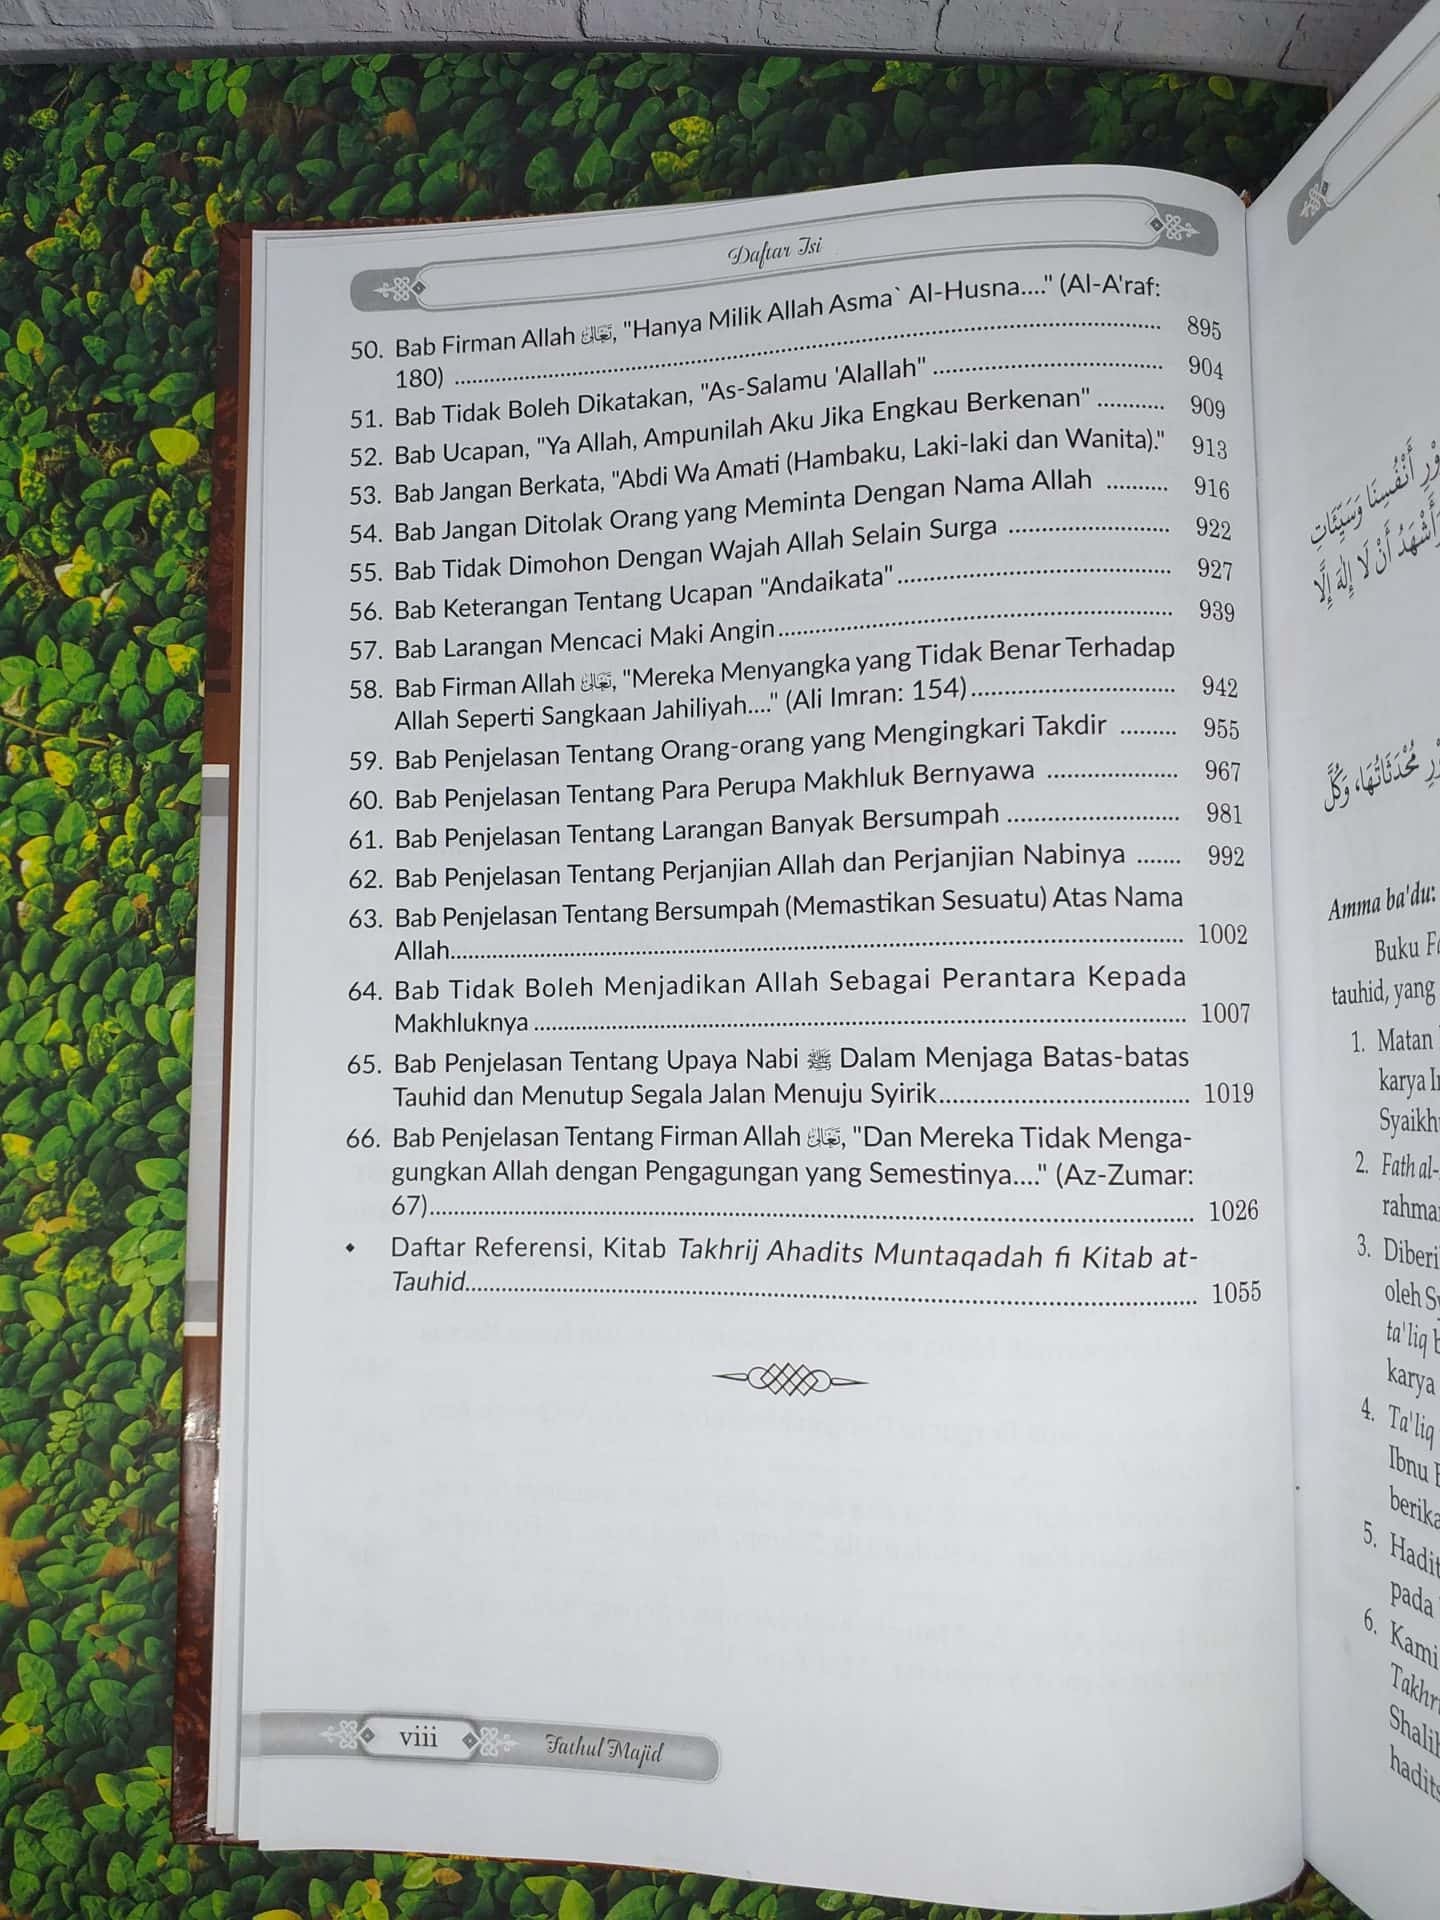 Daftar Isi
50. Bab Firman Allah تَعَالَى, "Hanya Milik Allah Asma` Al-Husna...." (Al-A'raf:
180) ........ 895
51. Bab Tidak Boleh Dikatakan, "As-Salamu 'Alallah" ........ 904
52. Bab Ucapan, "Ya Allah, Ampunilah Aku Jika Engkau Berkenan" ........ 909
53. Bab Jangan Berkata, "Abdi Wa Amati (Hambaku, Laki-laki dan Wanita)." 913
54. Bab Jangan Ditolak Orang yang Meminta Dengan Nama Allah ........ 916
55. Bab Tidak Dimohon Dengan Wajah Allah Selain Surga ........ 922
56. Bab Keterangan Tentang Ucapan "Andaikata" ........ 927
57. Bab Larangan Mencaci Maki Angin ........ 939
58. Bab Firman Allah تَعَالَى, "Mereka Menyangka yang Tidak Benar Terhadap
Allah Seperti Sangkaan Jahiliyah...." (Ali Imran: 154) ........ 942
59. Bab Penjelasan Tentang Orang-orang yang Mengingkari Takdir ........ 955
60. Bab Penjelasan Tentang Para Perupa Makhluk Bernyawa ........ 967
61. Bab Penjelasan Tentang Larangan Banyak Bersumpah ........ 981
62. Bab Penjelasan Tentang Perjanjian Allah dan Perjanjian Nabinya ....... 992
63. Bab Penjelasan Tentang Bersumpah (Memastikan Sesuatu) Atas Nama
Allah ........ 1002
64. Bab Tidak Boleh Menjadikan Allah Sebagai Perantara Kepada
Makhluknya ........ 1007
65. Bab Penjelasan Tentang Upaya Nabi ﷺ Dalam Menjaga Batas-batas
Tauhid dan Menutup Segala Jalan Menuju Syirik ........ 1019
66. Bab Penjelasan Tentang Firman Allah تَعَالَى, "Dan Mereka Tidak Menga-
gungkan Allah dengan Pengagungan yang Semestinya...." (Az-Zumar:
67) ........ 1026
• Daftar Referensi, Kitab Takhrij Ahadits Muntaqadah fi Kitab at-
Tauhid ........ 1055
viii Fathul Majid
أَنْفُسِنَا وَسَيِّئَاتِ
أَشْهَدُ أَنْ لَا إِلٰهَ إِلَّا
مُحْدَثَاتُهَا، وَكُلَّ
Amma ba'du:
Buku
tauhid, yang
1. Matan
karya
2. Fath al-
3. Diberi
oleh
ta'liq
karya
4. Ta'liq
Ibnu
5.
pada
6. Kami